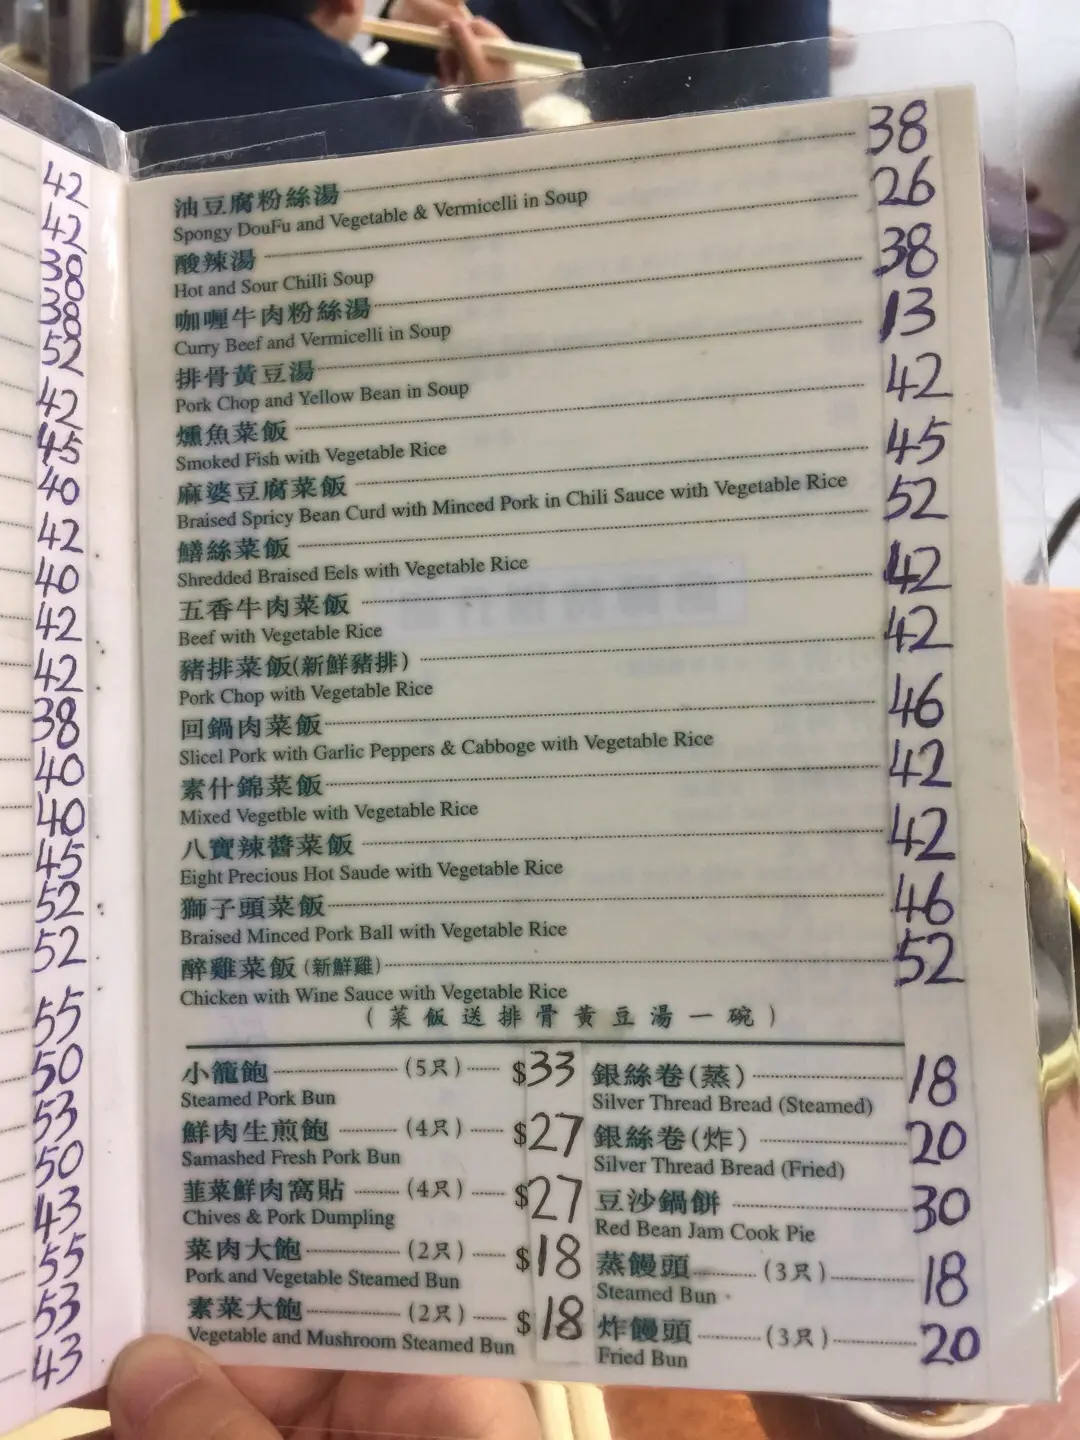 42
42
38
38
52
42
45
40
42
40
42
42
38
40
40
45
52
52
55
50
53
50
43
55
53
43
油豆腐粉絲湯 38
Spongy DouFu and Vegetable & Vermicelli in Soup
酸辣湯 26
Hot and Sour Chilli Soup
咖喱牛肉粉絲湯 38
Curry Beef and Vermicelli in Soup
排骨黃豆湯 13
Pork Chop and Yellow Bean in Soup
燻魚菜飯 42
Smoked Fish with Vegetable Rice
麻婆豆腐菜飯 45
Braised Spricy Bean Curd with Minced Pork in Chili Sauce with Vegetable Rice
鱔絲菜飯 52
Shredded Braised Eels with Vegetable Rice
五香牛肉菜飯 42
Beef with Vegetable Rice
豬排菜飯(新鮮豬排) 42
Pork Chop with Vegetable Rice
回鍋肉菜飯 46
Slicel Pork with Garlic Peppers & Cabboge with Vegetable Rice
素什錦菜飯 42
Mixed Vegetble with Vegetable Rice
八寶辣醬菜飯 42
Eight Precious Hot Saude with Vegetable Rice
獅子頭菜飯 46
Braised Minced Pork Ball with Vegetable Rice
醉雞菜飯(新鮮雞) 52
Chicken with Wine Sauce with Vegetable Rice
(菜飯送排骨黃豆湯一碗)
小籠飽 (5只) $33
Steamed Pork Bun
鮮肉生煎飽 (4只) $27
Samashed Fresh Pork Bun
韮菜鮮肉窩貼 (4只) $27
Chives & Pork Dumpling
菜肉大飽 (2只) $18
Pork and Vegetable Steamed Bun
素菜大飽 (2只) $18
Vegetable and Mushroom Steamed Bun
銀絲卷(蒸) 18
Silver Thread Bread (Steamed)
銀絲卷(炸) 20
Silver Thread Bread (Fried)
豆沙鍋餅 30
Red Bean Jam Cook Pie
蒸饅頭 (3只) 18
Steamed Bun
炸饅頭 (3只) 20
Fried Bun